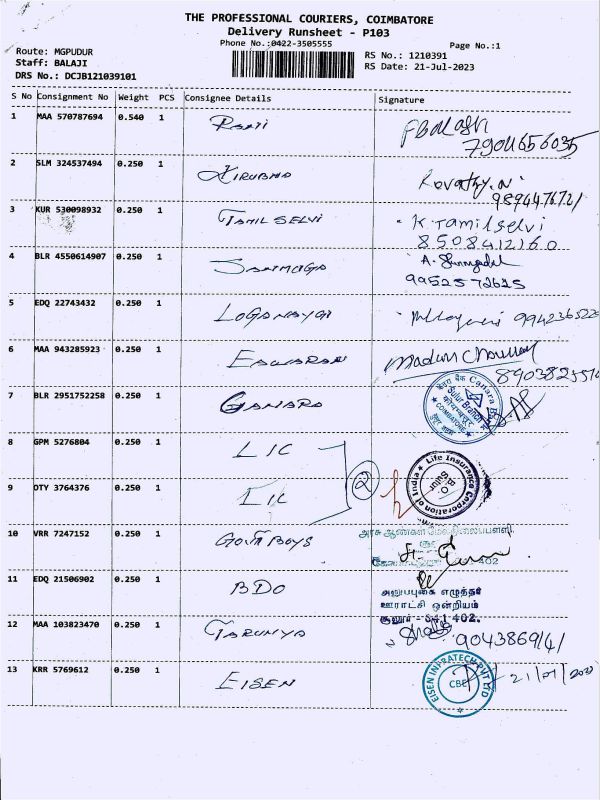 THE PROFESSIONAL COURIERS, COIMBATORE
Delivery Runsheet - P103
Phone No.:0422-3505555 Page No.:1
Route: MGPUDUR RS No.: 1210391
Staff: BALAJI RS Date: 21-Jul-2023
DRS No.: DCJB121039101
S No Consignment No Weight PCS Consignee Details Signature
1 MAA 570787694 0.540 1
7904656035
2 SLM 324537494 0.250 1 KIRUBHA Revathy.N
9894476721
3 KUR 530098932 0.250 1 TAMIL SELVI K Tamilselvi
8508412160
4 BLR 4550614907 0.250 1 A.
9952572625
5 EDQ 22743432 0.250 1 LOGANAYGI
6 MAA 943285923 0.250 1 EASWARAN
7 BLR 2951752258 0.250 1 CANARA
केनरा बैंक Canara Bank
Sulur Branch
COIMBATORE
8 GPM 5276804 0.250 1 LIC
Life Insurance Corporation of India
B.O.
Sulur
2
9 OTY 3764376 0.250 1 LIC
10 VRR 7247152 0.250 1 GOVT BOYS அரசு ஆண்கள் மேல்நிலைப்பள்ளி
402
11 EDQ 21506902 0.250 1 BDO அனுப்புகை எழுத்தர்
ஊராட்சி ஒன்றியம்
சூலூர் - 641 402.
12 MAA 103823470 0.250 1 TARUNYA
13 KRR 5769612 0.250 1 EISEN
EISEN INFRATECH PVT LTD
CBE